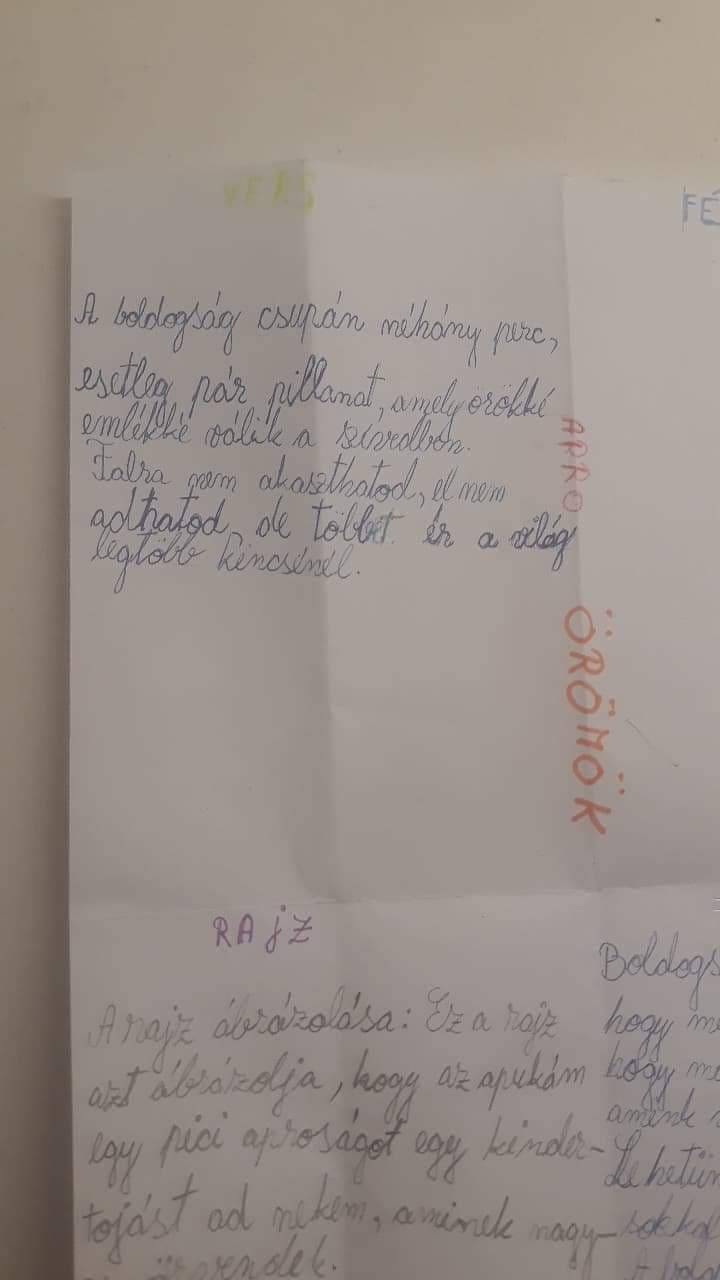 VERS
FÉ
A boldogság csupán néhány perc,
esetleg pár pillanat, amely örökké
emlékké válik a szívedben.
Falra nem akaszthatod, el nem
adhatod, de többet ér a világ
legtöbb kincsénél.
APRO
ÖRÖMÖK
RAJZ
A rajz ábrázolása: Ez a rajz
azt ábrázolja, hogy az apukám
egy pici aproságot egy kinder-
tojást ad nekem, aminek nagy-
örvendek.
Boldogs
hogy me
hogy me
amink
Lehetün
sokká